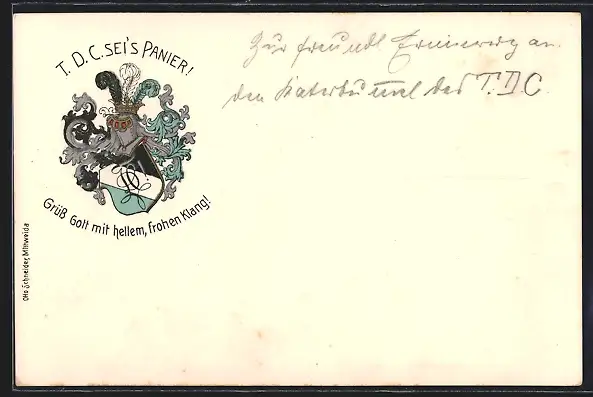 T. D. C. SEI'S PANIER!
Grüß Gott mit hellem, frohen Klang!
Otto Schneider, Mittweida
Zur freundl. Erinnerung an
den Katerbummel des T.D.C.